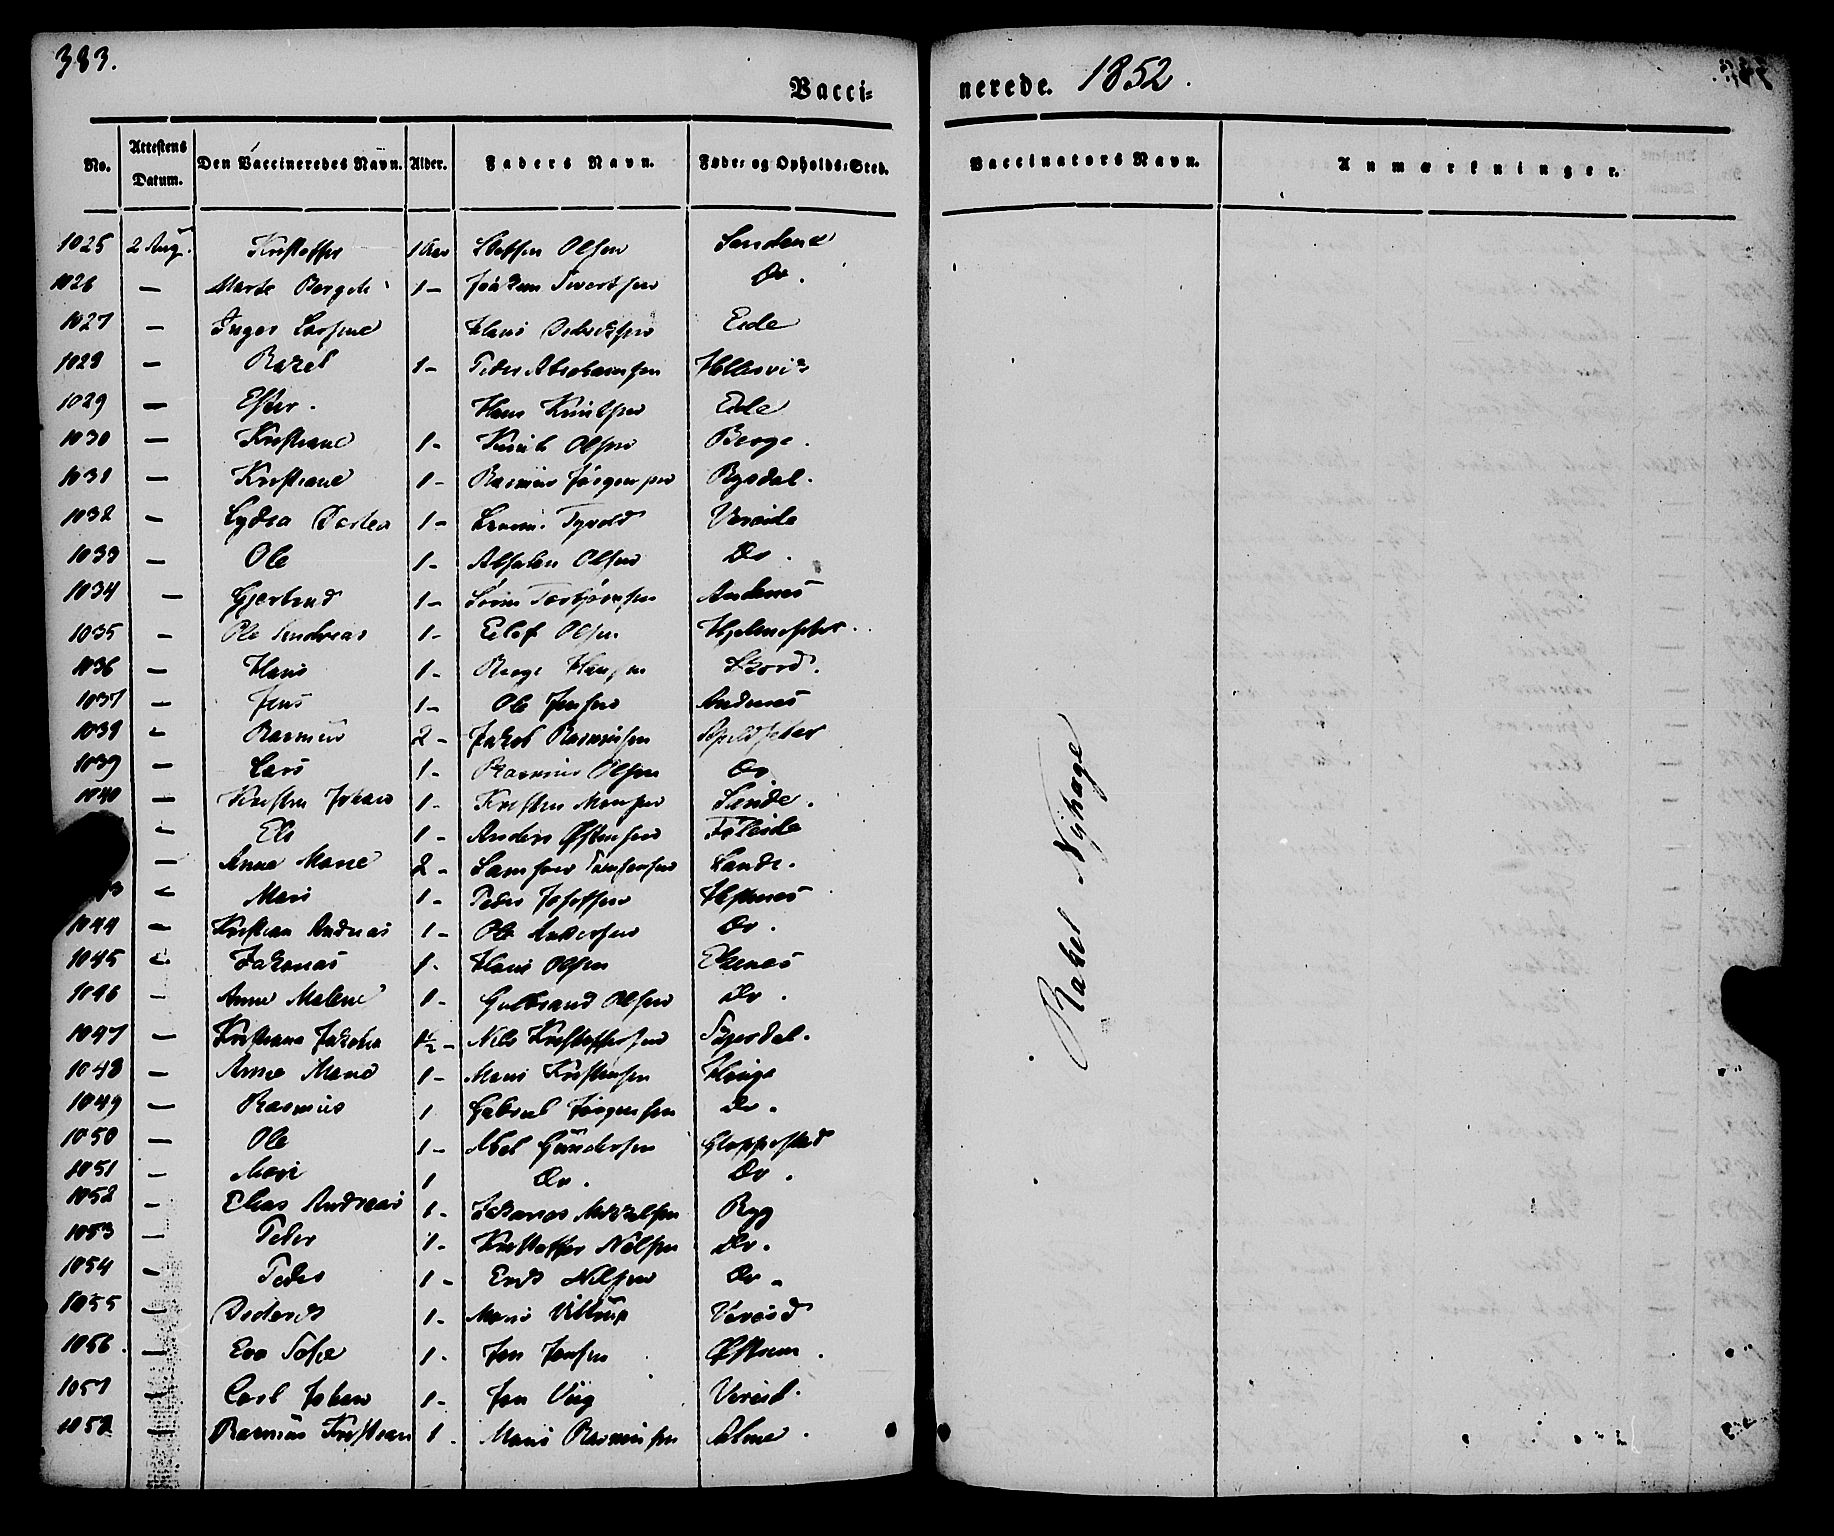 383.
Vacci-
nerede. 1852.
No. Attestens Datum. Den Vaccineredes Navn. Alder. Faders Navn. Føde- og Opholds-Sted.
Vaccinators Navn. Anmærkninger.
1025 2 Aug. Kristoffer 1 Aar Steffen Olsen Sandene
1026 — Marte Bergete 1 - Joakim Sivertsen Do.
1027 — Inger Hans Eide
1028 — Rakel 1 - Peder Abrahamsen
1029 — Ester. Hans Knutsen Eide
1030 — Kristiane 1 - Knut Olsen Berge.
1031 — Kristiane 1 - Rasmus Jørgensen Rysdal.
1032 — Lydia 1 - Vereide
1033 — Ole 1 - Absalon Olsen Do.
1034 — Gjertrud 1 - Søren Torbjørnsen Andenes
1035 — Ole Andreas 1 - Eilef Olsen
1036 — Hans 1 - Hansen Skord.
1037 — Jens 1 - Ole Jensen Andenes
1038 — Rasmus 2 - Jakob Rasmussen Apeldseter
1039 — Lars 1 - Rasmus Olsen Do
1040 — Kristen Johan 1 - Kristen Monsen Sande.
— Els 1 - Anders Østensen Føleide
— Anne Marie 2 - Samson Sande.
3 — Mari 1 - Peder Josefsen Hestenes
1044 — Kristian Andreas 1 - Ole Andersen Do.
1045 — Jakonas 1 - Hans Olsen Ekenes
1046 — Anne Malene 1 - Gulbrand Olsen Do.
1047 — Kristiane Jakobea 1½ - Nils Kristoffersen
1048 — Anne Marie 1 - Mons Kristensen Hauge
1049 — Rasmus 1 Gabriel Jørgensen Do.
1050 — Ole 1 - Abel Gundersen Gloppestad
1051 — Mari 1 Do. Do.
1052 — Elias Andreas 1 - Mikkelsen Ryg
1053 — Peder 1 - Kristoffer Nilsen Do.
1054 — Peder 1 - Erik Nilsen Do.
1055 — Diderik 1 - Mons Vereid
1056. — Eva Sofie 1 - Jon Jonsen Østrem.
1057 — Carl Johan 1 - Jon Vereid.
1058 — Rasmus Kristian 1. Mons Rasmussen Alme.
Rakel Nyhage